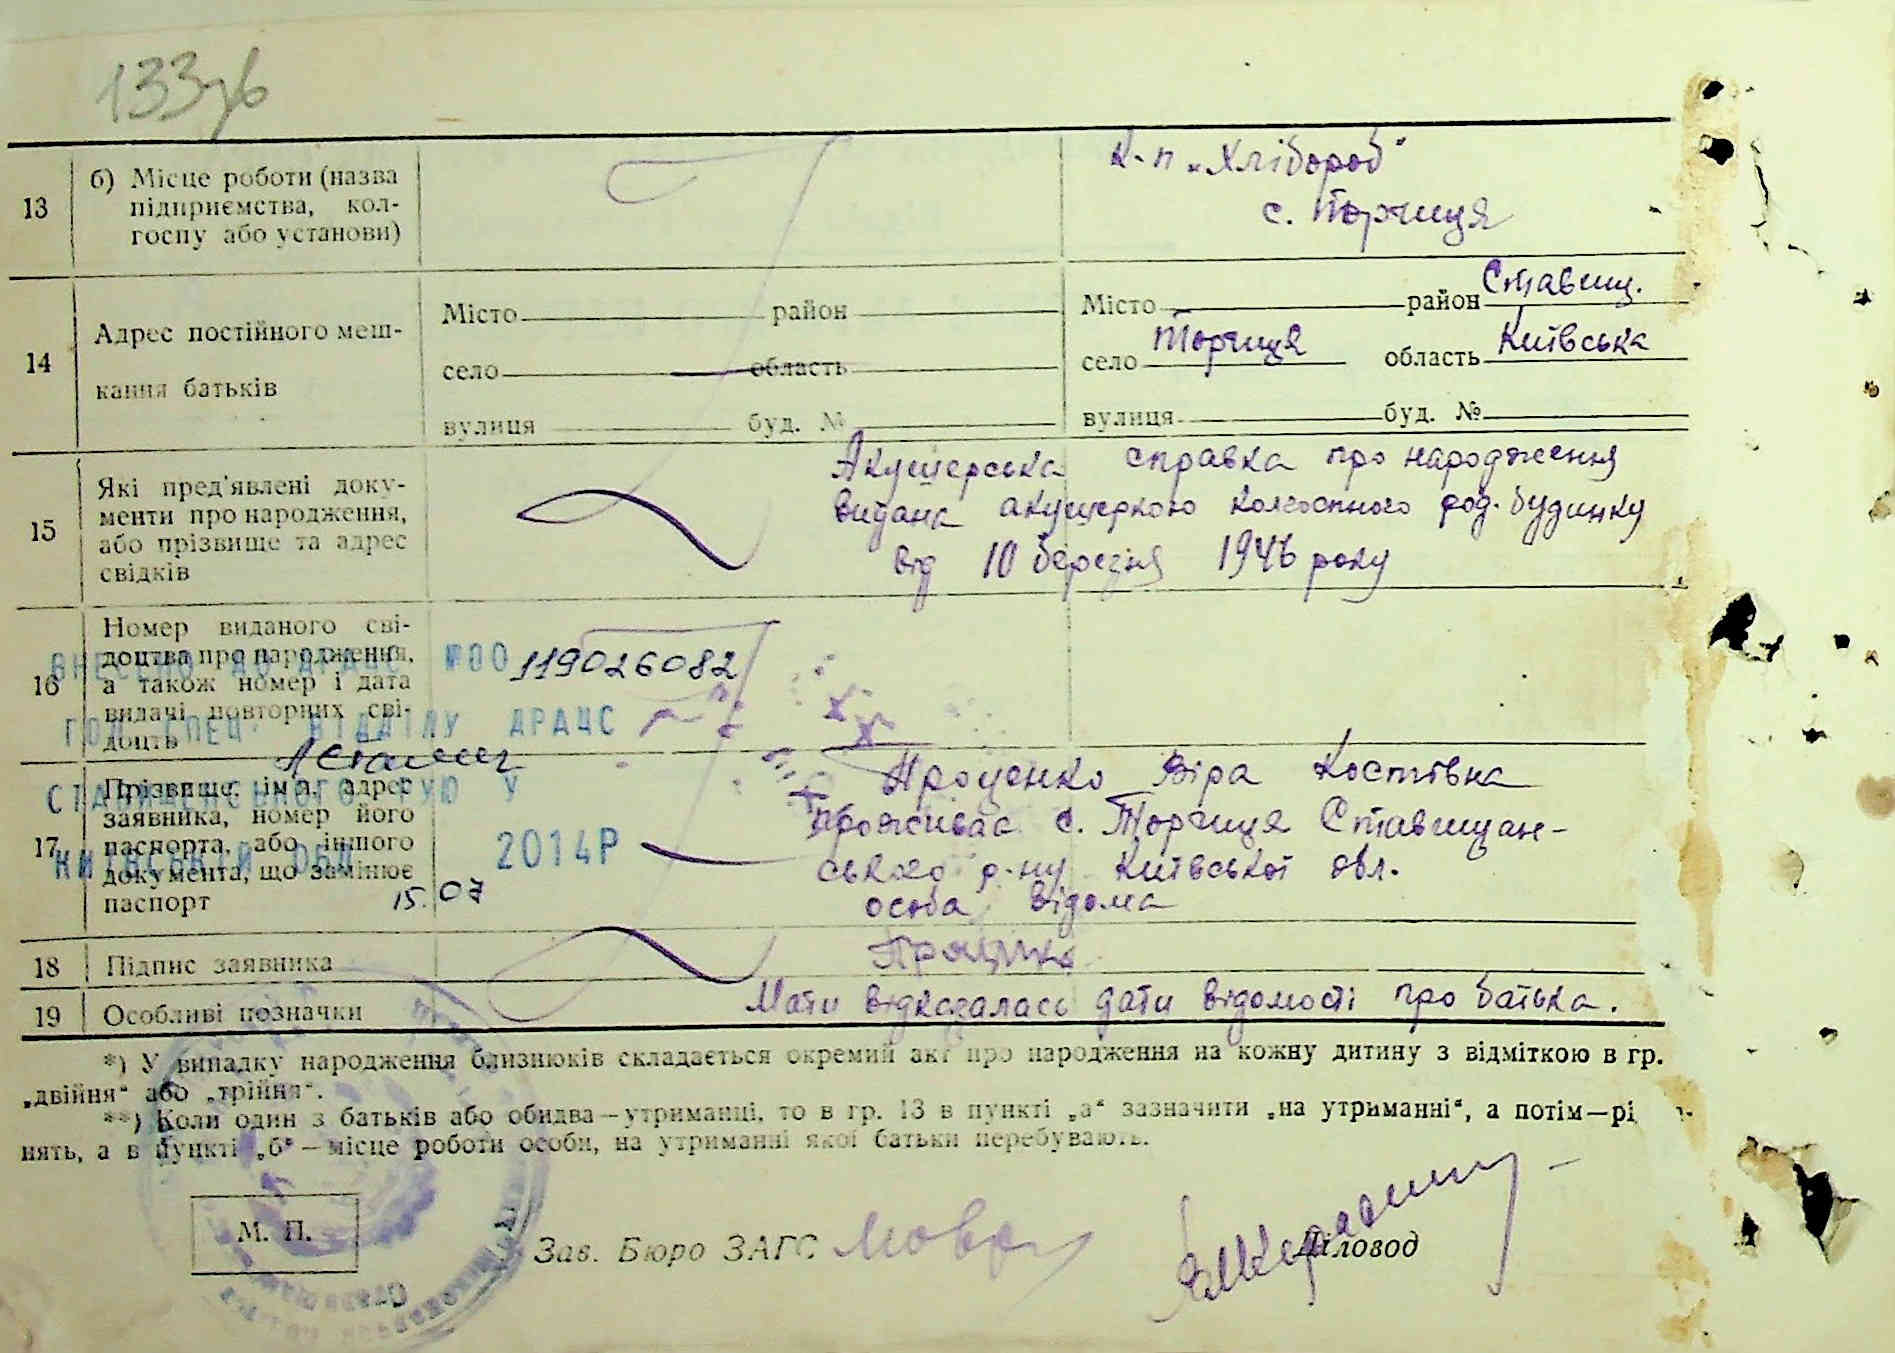 133зв
13
б) Місце роботи (назва
підприємства, кол-
госпу або установи)
К-п „Хлібороб“
с. Торчиця
14
Адрес постійного меш-
кання батьків
Місто район
село область
вулиця буд. №
Місто район Ставищ.
село Торчиця область Київська
вулиця буд. №
15
Які пред'явлені доку-
менти про народження,
або прізвище та адрес
свідків
Акушерська справка про народження
видана акушеркою колгоспного род. будинку
від 10 березня 1946 року
16
Номер виданого сві-
доцтва про народження,
а також номер і дата
видачі повторних сві-
доцтв
ВНЕСЕНО ДО №00119026082
ГОЛ СПЕЦ. ВІДДІЛУ ДРАЦС
СТАВИЩЕНСЬКОГО РУЮ У
КИЇВСЬКІЙ ОБЛ 2014Р
15.07
17
Прізвище, ім'я, адрес
заявника, номер його
паспорта, або іншого
документа, що замінює
паспорт
Проценко Віра Костівна
проживає с. Торчиця Ставищан-
ського р-ну Київської обл.
особа відома
18
Підпис заявника
Проценко
19
Особливі позначки
Мати відказалась дати відомості про батька.
*) У випадку народження близнюків складається окремий акт про народження на кожну дитину з відміткою в гр.
„двійня“ або „трійня“.
**) Коли один з батьків або обидва—утриманці, то в гр. 13 в пункті „а“ зазначити „на утриманні“, а потім—рі
нять, а в пункті „б“ — місце роботи особи, на утриманні якої батьки перебувають.
М. П.
Зав. Бюро ЗАГС
Діловод